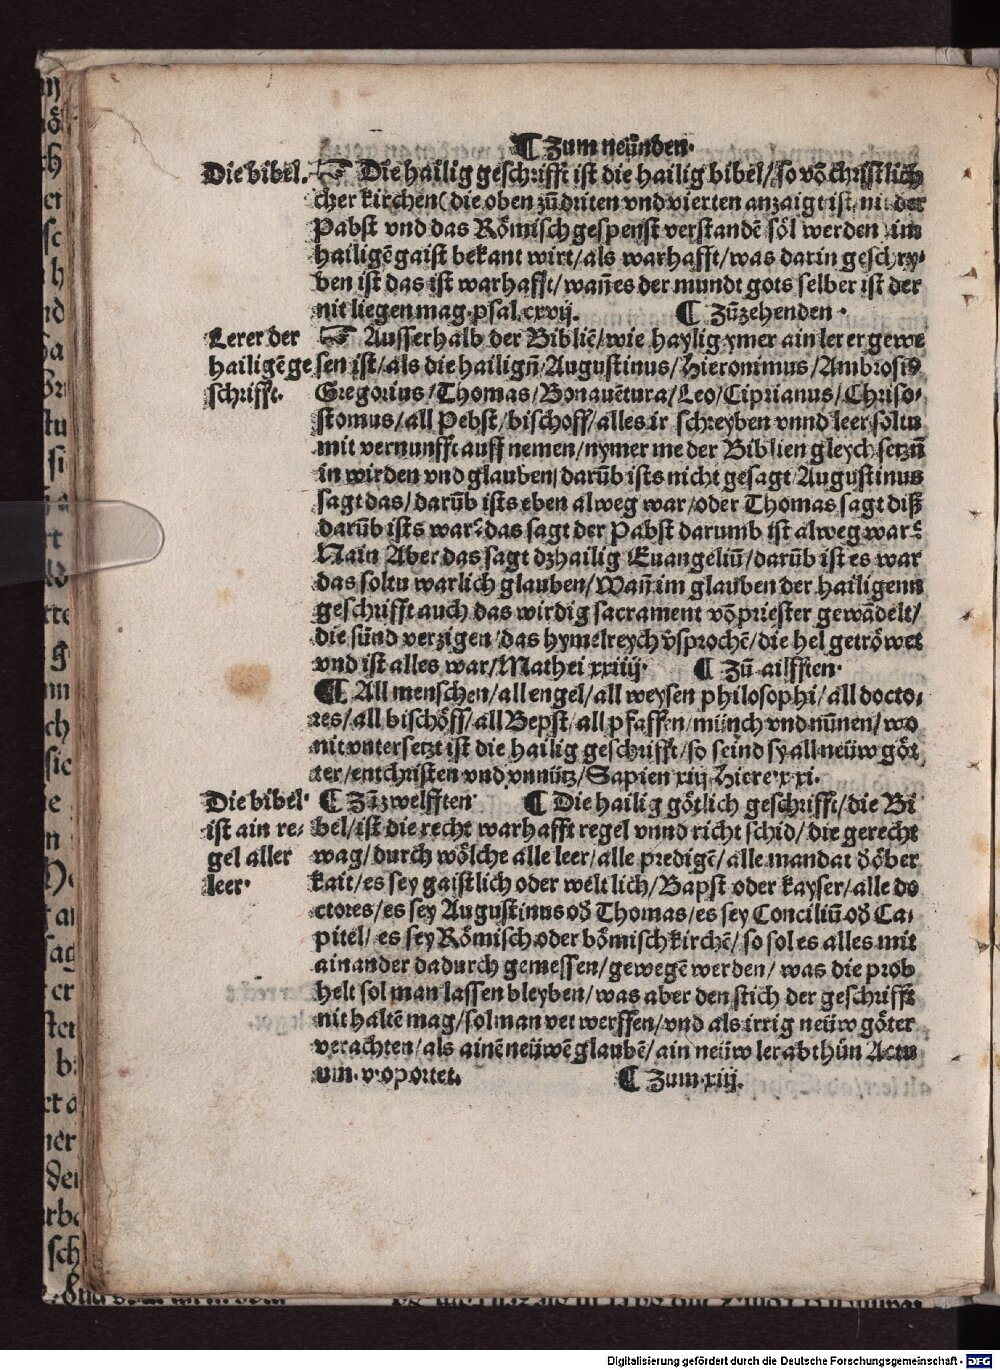 ¶ Zum neünden·
Die bibel. ☞ Die hailig geschrifft ist die hailig bibel/so võ christlich
cher kirchen (die oben zů driten vnd vierten anzaigt ist, nit der
Pabst vnd das Römisch gespenst verstandẽ söl werden im
hailigẽ gaist bekant wirt/als warhafft/was darin geschry-
ben ist das ist warhafft/wañ es der mundt gots selber ist der
nit liegen mag·psal.cxvij. ¶ Zů zehenden·
Lerer der ☞ Ausserhalb der Bibliẽ/wie haylig ymer ain lerer gewe
hailigẽ ge sen ist/als die hailigñ/Augustinus/Hieronimus/Ambrosiꝰ
schrifft· Gregorius/Thomas/Bonauẽtura/Leo/Ciprianus/Chriso-
stomus/all Pebst/bischoff/alles ir schreyben vnnd leer soltu
mit vernunfft auff nemen/nymer me der Biblien gleych setzñ
in wirden vnd glauben/darũb ists nicht gesagt Augustinus
sagt das/darũb ists eben alweg war/oder Thomas sagt diß
darũb ists war? das sagt der Pabst darumb ist alweg war?
Nain Aber das sagt dz hailig Euangeliũ/darũb ist es war
das soltu warlich glauben/Wañ im glauben der hailigenn
geschrifft auch das wirdig sacrament võ priester gewãdelt/
die sünd verzigen/das hymelreych v̈sprochẽ/die hel getröwet
vnd ist alles war/Mathei xxiiij· ¶ Zů ailfften·
¶ All menschen/all engel/all weysen philosophi/all docto-
res/all bischöff/all Bepst/all pfaffen/münch vnd nũnen/wo
nit vntersetzt ist die hailig geschrifft/so seind sy all neüw göt
ter/entchristen vnd vnnütz/Sapien xiij Hiere·xxi.
Die bibel· ¶ Zů zwelfften· ¶ Die hailig götlich geschrifft/die Bi
ist ain re- bel/ist die recht warhafft regel vnnd richt schid/die gerecht
gel aller wag/durch wölche alle leer/alle predigẽ/alle mandat ď öber
leer· kait/es sey gaistlich oder weltlich/Bapst oder kayser/alle do
ctores/es sey Augustinus oď Thomas/es sey Conciliũ oď Ca-
pitel/es sey Römisch oder bömisch kirchẽ/so sol es alles mit
ainander dadurch gemessen/gewegẽ werden/was die prob
helt sol man lassen bleyben/was aber den stich der geschrifft
nit haltẽ mag/sol man verwerffen/vnd als irrig neüw göter
verachten/als ainẽ neüwẽ glaubẽ/ain neüw ler abthůn Actu
um·v·oportet. ¶ Zum·xiij.
Digitalisierung gefördert durch die Deutsche Forschungsgemeinschaft - DFG